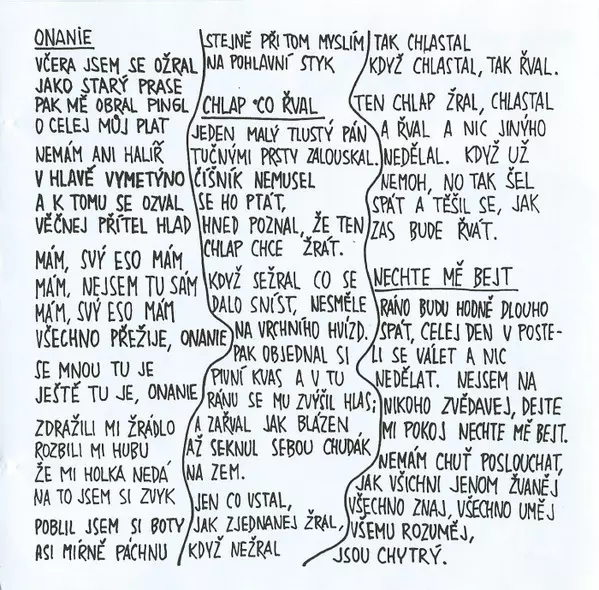 ONANIE
VČERA JSEM SE OŽRAL
JAKO STARÝ PRASE
PAK MĚ OBRAL PINGL
O CELEJ MŮJ PLAT
NEMÁM ANI HALÍŘ
V HLAVĚ VYMETÝNO
A K TOMU SE OZVAL
VĚČNEJ PŘÍTEL HLAD
MÁM, SVÝ ESO MÁM
MÁM, NEJSEM TU SÁM
MÁM, SVÝ ESO MÁM
VŠECHNO PŘEŽIJE, ONANIE
SE MNOU TU JE
JEŠTĚ TU JE, ONANIE
ZDRAŽILI MI ŽRÁDLO
ROZBILI MI HUBU
ŽE MI HOLKA NEDÁ
NA TO JSEM SI ZVYK
POBLIL JSEM SI BOTY
ASI MÍRNĚ PÁCHNU
STEJNĚ PŘI TOM MYSLÍM
NA POHLAVNÍ STYK
CHLAP CO ŘVAL
JEDEN MALÝ TLUSTÝ PÁN
TUČNÝMI PRSTY ZALOUSKAL.
ČÍŠNÍK NEMUSEL
SE HO PTÁT,
HNED POZNAL, ŽE TEN
CHLAP CHCE ŽRÁT.
KDYŽ SEŽRAL CO SE
DALO SNÍST, NESMĚLE
NA VRCHNÍHO HVÍZD.
PAK OBJEDNAL SI
PIVNÍ KVAS A V TU
RÁNU SE MU ZVÝŠIL HLAS;
A ZAŘVAL JAK BLÁZEN,
AŽ SEKNUL SEBOU CHUDÁK
NA ZEM.
JEN CO VSTAL,
JAK ZJEDNANEJ ŽRAL,
KDYŽ NEŽRAL
TAK CHLASTAL
KDYŽ CHLASTAL, TAK ŘVAL.
TEN CHLAP ŽRAL, CHLASTAL
A ŘVAL A NIC JINÝHO
NEDĚLAL. KDYŽ UŽ
NEMOH, NO TAK ŠEL
SPÁT A TĚŠIL SE, JAK
ZAS BUDE ŘVÁT.
NECHTE MĚ BEJT
RÁNO BUDU HODNĚ DLOUHO
SPÁT, CELEJ DEN V POSTE-
LI SE VÁLET A NIC
NEDĚLAT. NEJSEM NA
NIKOHO ZVĚDAVEJ, DEJTE
MI POKOJ NECHTE MĚ BEJT.
NEMÁM CHUŤ POSLOUCHAT,
JAK VŠICHNI JENOM ŽVANĚJ
VŠECHNO ZNAJ, VŠECHNO UMĚJ
VŠEMU ROZUMĚJ,
JSOU CHYTRÝ.